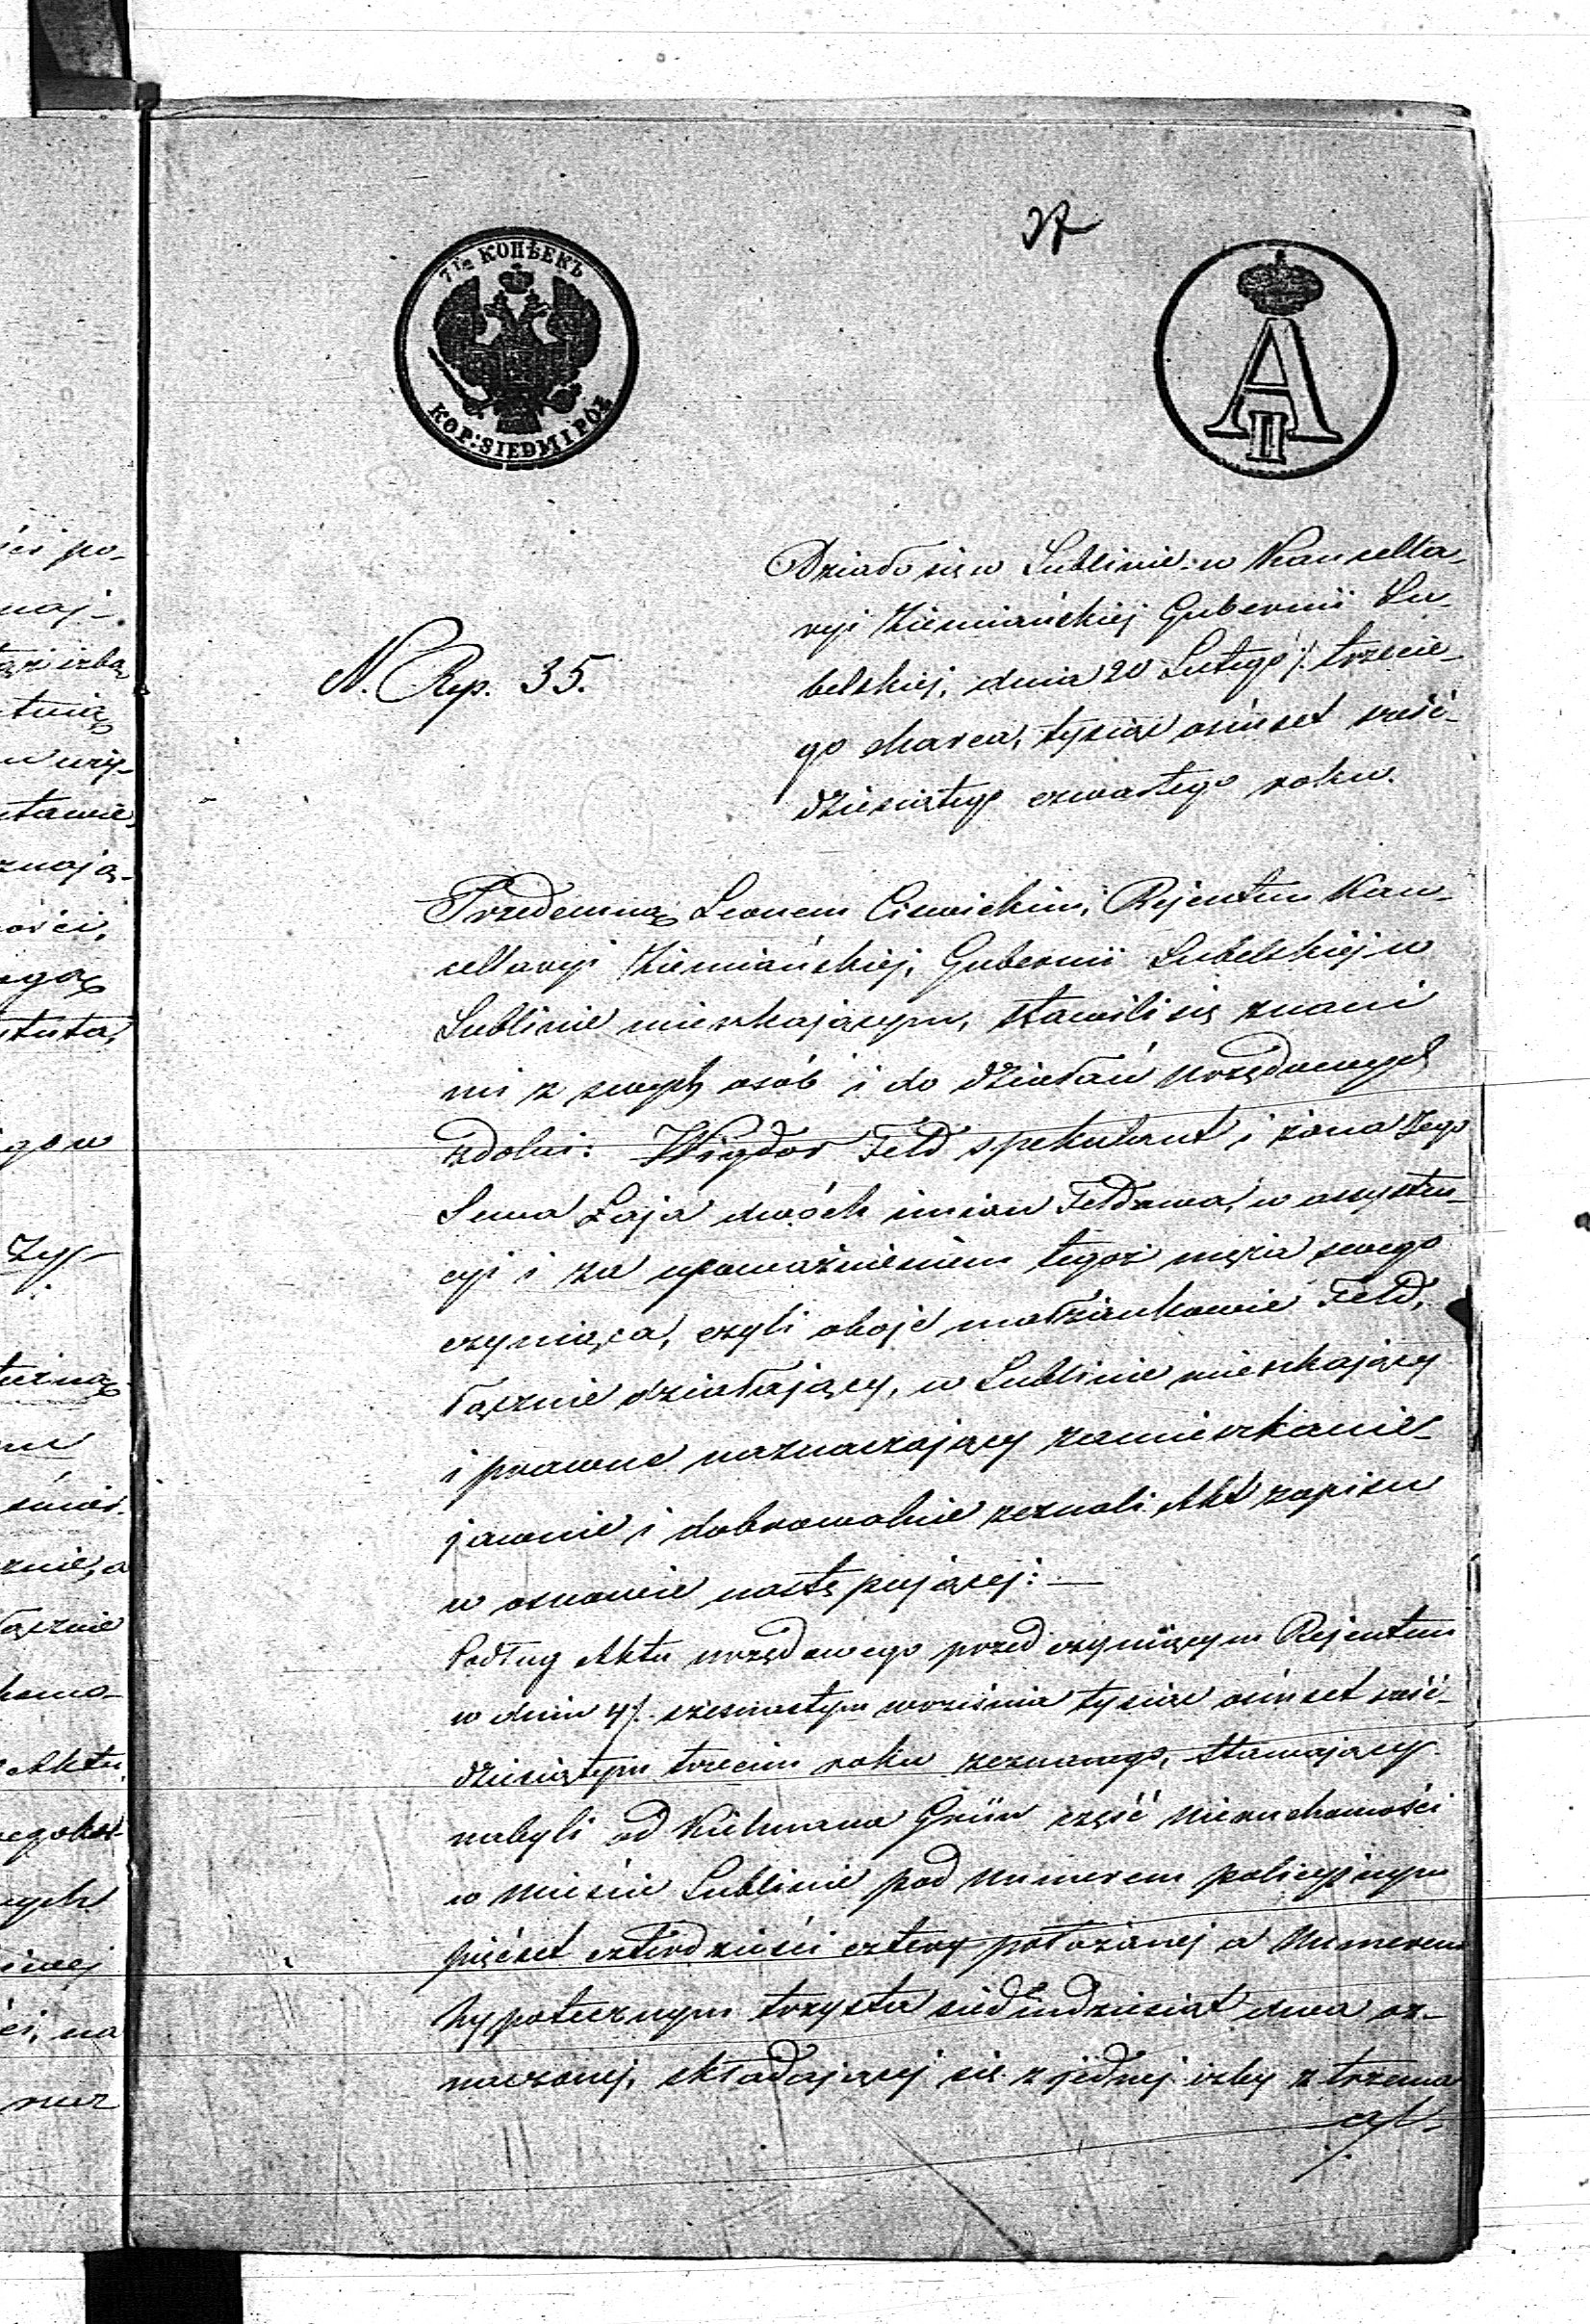 37
7 1/2 КОПѢЕКЪ
KOP: SIEDM I PÓŁ
A II
Działo się w Lublinie w Kancella-
ryi Ziemiańskiej Gubernii Lu-
belskiej, dnia 20 Lutego /. trzecie-
go Marca, tysiąc ośmset sześć-
dziesiątego czwartego roku.
N. Rep. 35.
Przedemną Leonem Ciswickim, Rejentem Kan-
cellaryi Ziemiańskiej, Gubernii Lubelskiej w
Lublinie mieszkającym, stawili się znani
mi z swych osób i do działań urzędowych
zdolni: Wigdor Feld spekulant i żona Jego
Sura Łaja dwóch imion Feldowa, w assysten-
cyi i za upoważnieniem tegoż męża swego
czyniąca, czyli oboje małżonkowie Feld,
łącznie działający, w Lublinie mieszkający
i prawne naznaczający zamieszkanie
jawnie i dobrowolnie zeznali Akt zapisu
w osnowie następującej: —
Podług Aktu urzędowego przed czyniącym Rejentem
w dniu 4/. szesnastym września tysiąc ośmset sześć-
dziesiątym trzecim roku zeznanego, stawający
nabyli od Kielmana Grün część nieruchomości
w mieście Lublinie pod Numerem policyjnym
pięćset czterdzieści cztery położonej a Numerem
hypotecznym trzysta siedmdziesiąt dwa oz-
naczonej, składającej się z jednej izby z trzema